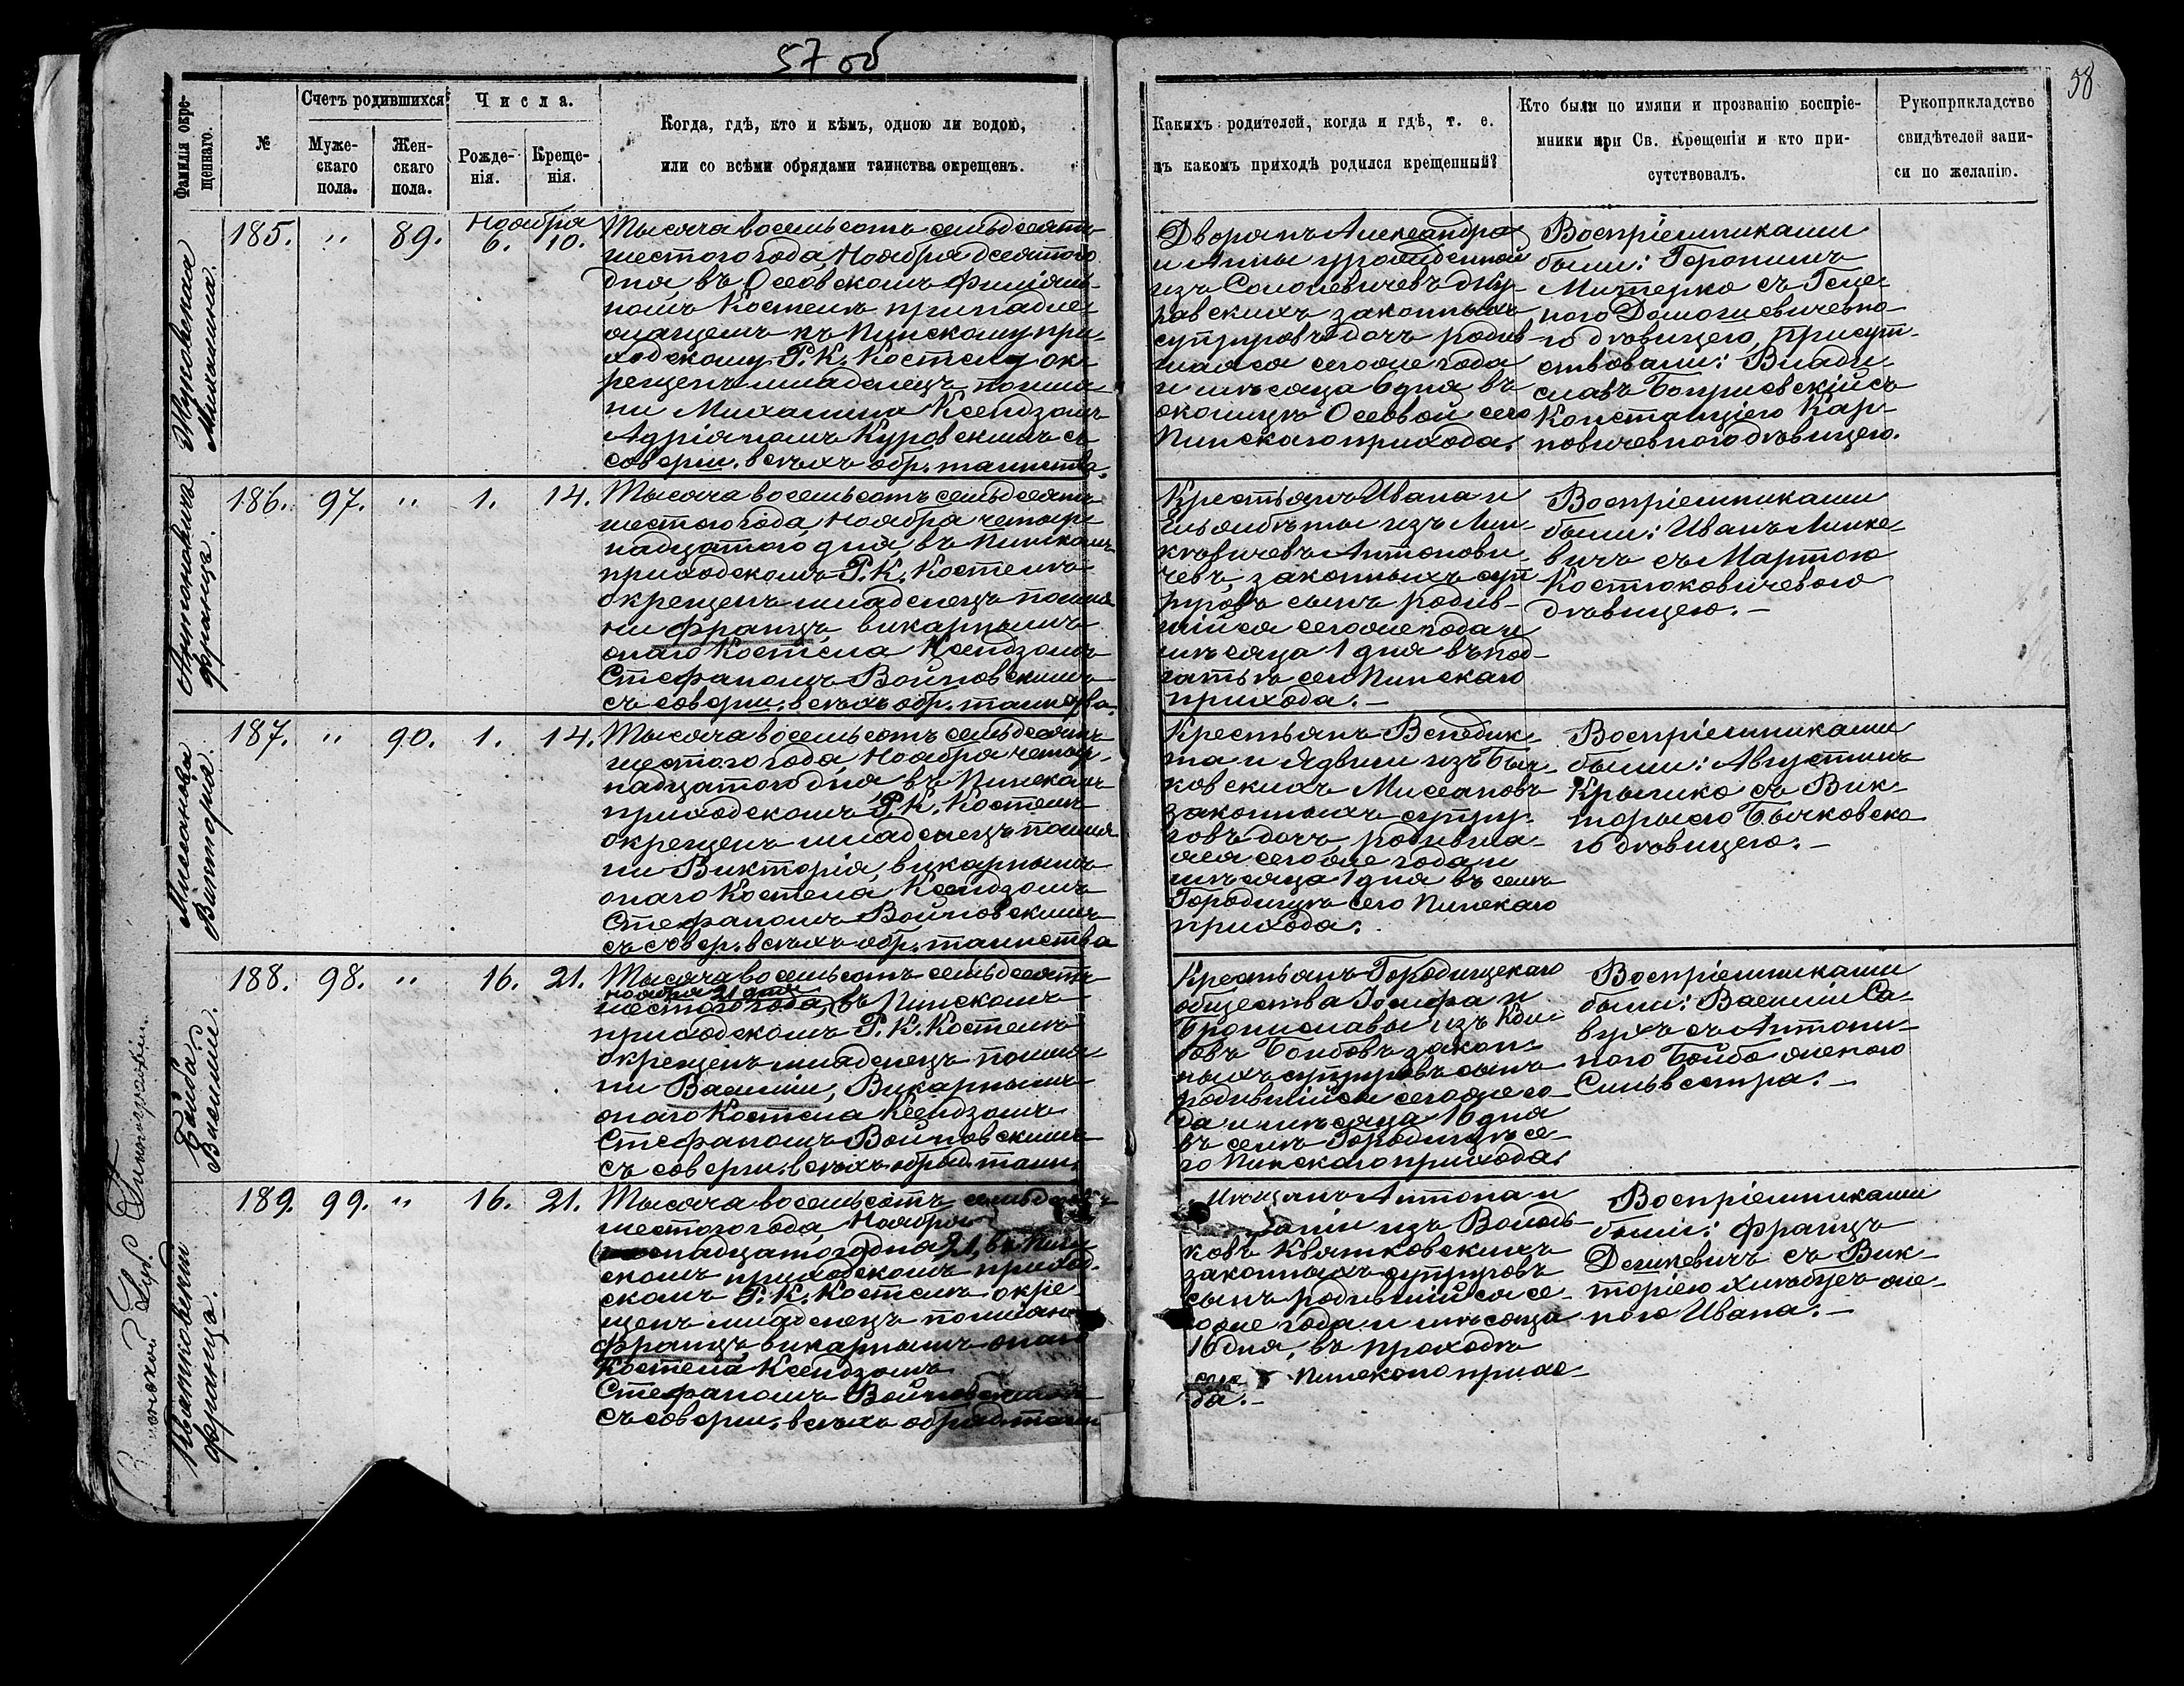 57 об
58
Фамилія окре-
щеннаго.
№
Счетъ родившихся
Муже-
скаго
пола.
Жен-
скаго
пола.
Числа.
Рожде-
нія.
Креще-
нія.
Когда, гдѣ, кто и кѣмъ, одною ли водою,
или со всѣми обрядами таинства окрещенъ.
Какихъ родителей, когда и гдѣ, т. е.
въ какомъ приходѣ родился крещенный?
Кто были по имяни и прозванію воспріе-
мники при Св. Крещеніи и кто при-
сутствовалъ.
Рукоприкладство
свидѣтелей запи-
си по желанію.
Жуковская
Михалина.
185. " 89.
Ноября
6. 10.
Тысяча восемьсотъ семьдесятъ
шестого года, Ноября десятого
дня, въ Осовскомъ Филіаль-
номъ Костелѣ принадле-
жащемъ къ Пинскому при-
ходскому Р. К. Костелу ок-
рещенъ младенецъ поимя-
ни Михалина Ксендзомъ
Адріяномъ Куровскимъ съ
соверш. всѣхъ обр. таинства.
Дворянъ Александра
и Анны урожденной
изъ Солоневичевъ Жу-
равскихъ законныхъ
супруговъ дочь родив-
шаяся сегоже года
и мѣсяца 6 дня въ
околицѣ Осовой сего
Пинскаго прихода.
Воспріемниками
были: Геронимъ
Митерко съ Геле-
ною Домосиевичевно-
ю дѣвицею, присут-
ствовали: Влади-
славъ Боприевскій съ
Констанціею Кар-
повичевною дѣвицею.
Антоновичъ
Францъ.
186. 97. " 1. 14.
Тысяча восемьсотъ семьдесятъ
шестого года, Ноября четыр-
надцатого дня, въ Пинскомъ
приходскомъ Р. К. Костелѣ
окрещенъ младенецъ поимя-
ни Францъ, викарнымъ
онаго Костела Ксендзомъ
Стефаномъ Войновскимъ
съ соверш. всѣхъ обр. таинства.
Крестьянъ Ивана и
Ельжбѣты изъ Лин-
кѣвичевъ Антонови-
чевъ, законныхъ суп-
руговъ сынъ родив-
шійся сегоже года и
мѣсяца 1 дня въ
сего Пинскаго
прихода. —
Воспріемниками
были: Иванъ Линке-
вичъ съ Мартою
Костюковичевою
дѣвицею. —
Мисанова
Викторія.
187. " 90. 1. 14.
Тысяча восемьсотъ семьдесятъ
шестого года, Ноября четыр-
надцатого дня въ Пинскомъ
приходскомъ Р. К. Костелѣ
окрещенъ младенецъ поимя-
ни Викторія, викарнымъ
онаго Костела Ксендзомъ
Стефаномъ Войновскимъ
съ совер. всѣхъ обр. таинства
Крестьянъ Венедик-
та и Ядвиги изъ Быч-
ковскихъ Мисановъ
законныхъ супру-
говъ дочь, родивша-
яся сегоже года и
мѣсяца 1 дня въ селѣ
Городищѣ сего Пинскаго
прихода.
Воспріемниками
были: Августинъ
Крышко съ Вик-
торыею Бычковско-
ю дѣвицею. —
Бойба
Василій.
188. 98. " 16. 21.
Тысяча восемьсотъ семьдесятъ
ноября 21 дня
шестого года, въ Пинскомъ
приходскомъ Р. К. Костелѣ
окрещенъ младенецъ поимя-
ни Василій, Викарнымъ
онаго Костела Ксендзомъ
Стефаномъ Войновскимъ
съ соверш. всѣхъ обряд. таин.
Крестьянъ Городищскаго
общества Іосифа и
Брониславы изъ
Бойбовъ закон-
ныхъ супруговъ сынъ
родившійся сегоже го-
да и мѣсяца 16 дня
въ селѣ Городищѣ се-
го Пинскаго прихода.
Воспріемниками
были: Василій Са-
вухъ съ Антони-
ною Бойбо женою
Сильвестра. —
Квятковскій
Франца.
189. 99. " 16. 21.
Тысяча восемьсотъ семьдесятъ
шестого года, Ноября
надцатого дня 21, въ Пин-
скомъ приходскомъ приход-
скомъ Р. К. Костелѣ окре-
щенъ младенецъ поимяни
Францъ, викарнымъ онаго
Костела Ксендзомъ
Стефаномъ Войновскимъ
съ соверш. всѣхъ обряд. таин
Мѣщанъ Антона и
изъ Володь-
ковъ Квятковскихъ
законныхъ супруговъ
сынъ родившійся се-
гоже года и мѣсяца
16 дня, въ
сего Пинского прихо-
да. —
Воспріемниками
были: Францъ
Демкевичъ съ Вик-
торіею Хлѣбцев же-
ною Ивана. —
Типографіи.